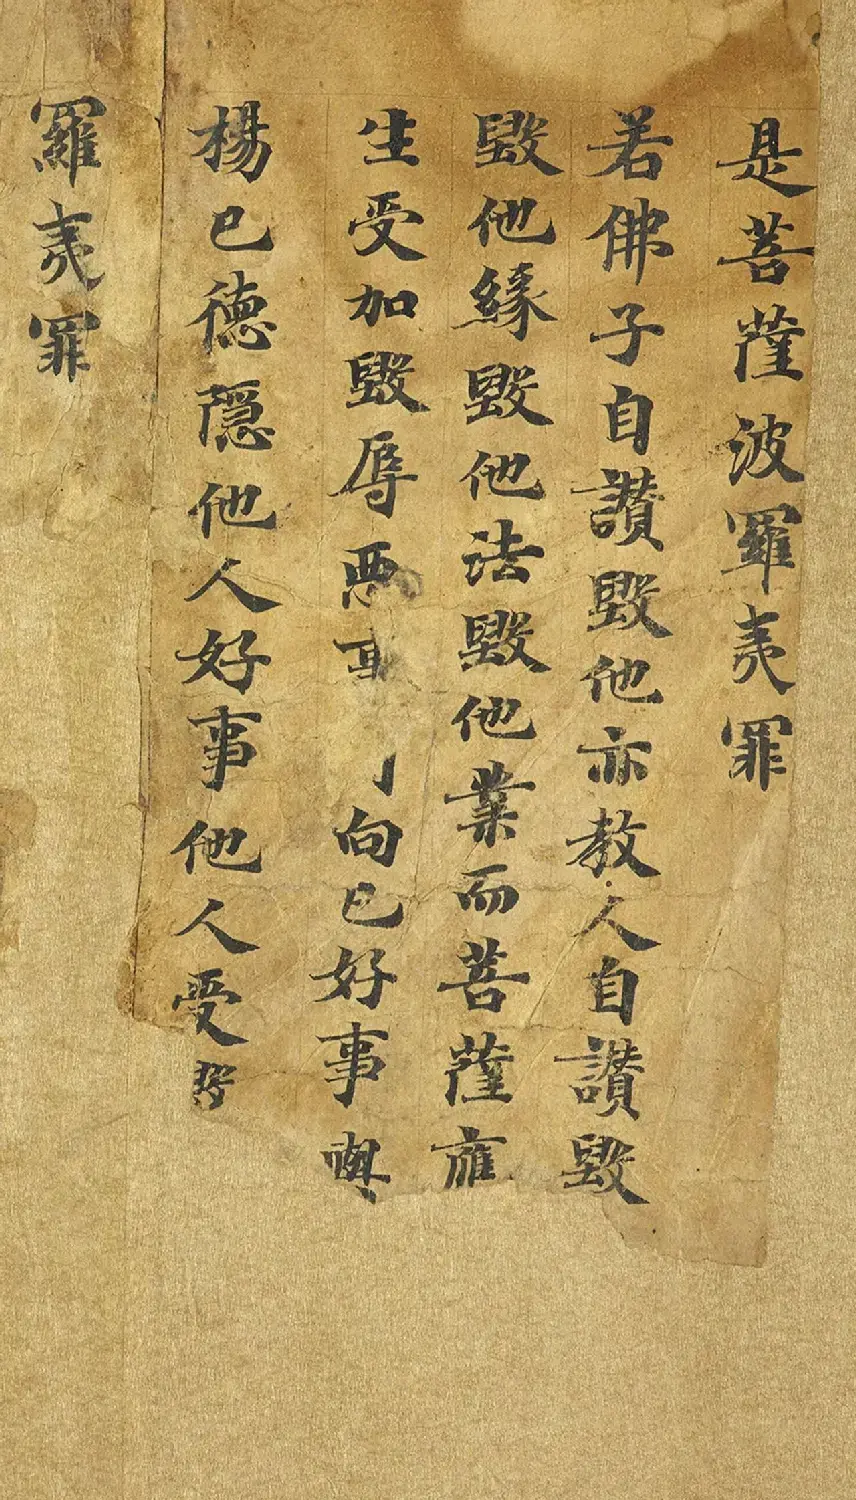 是菩薩波羅夷罪
若佛子自讚毀他亦教人自讚毀
毀他緣毀他法毀他業而菩薩應
生受加毀辱惡事向己好事與
楊己德隱他人好事他人受
羅夷罪